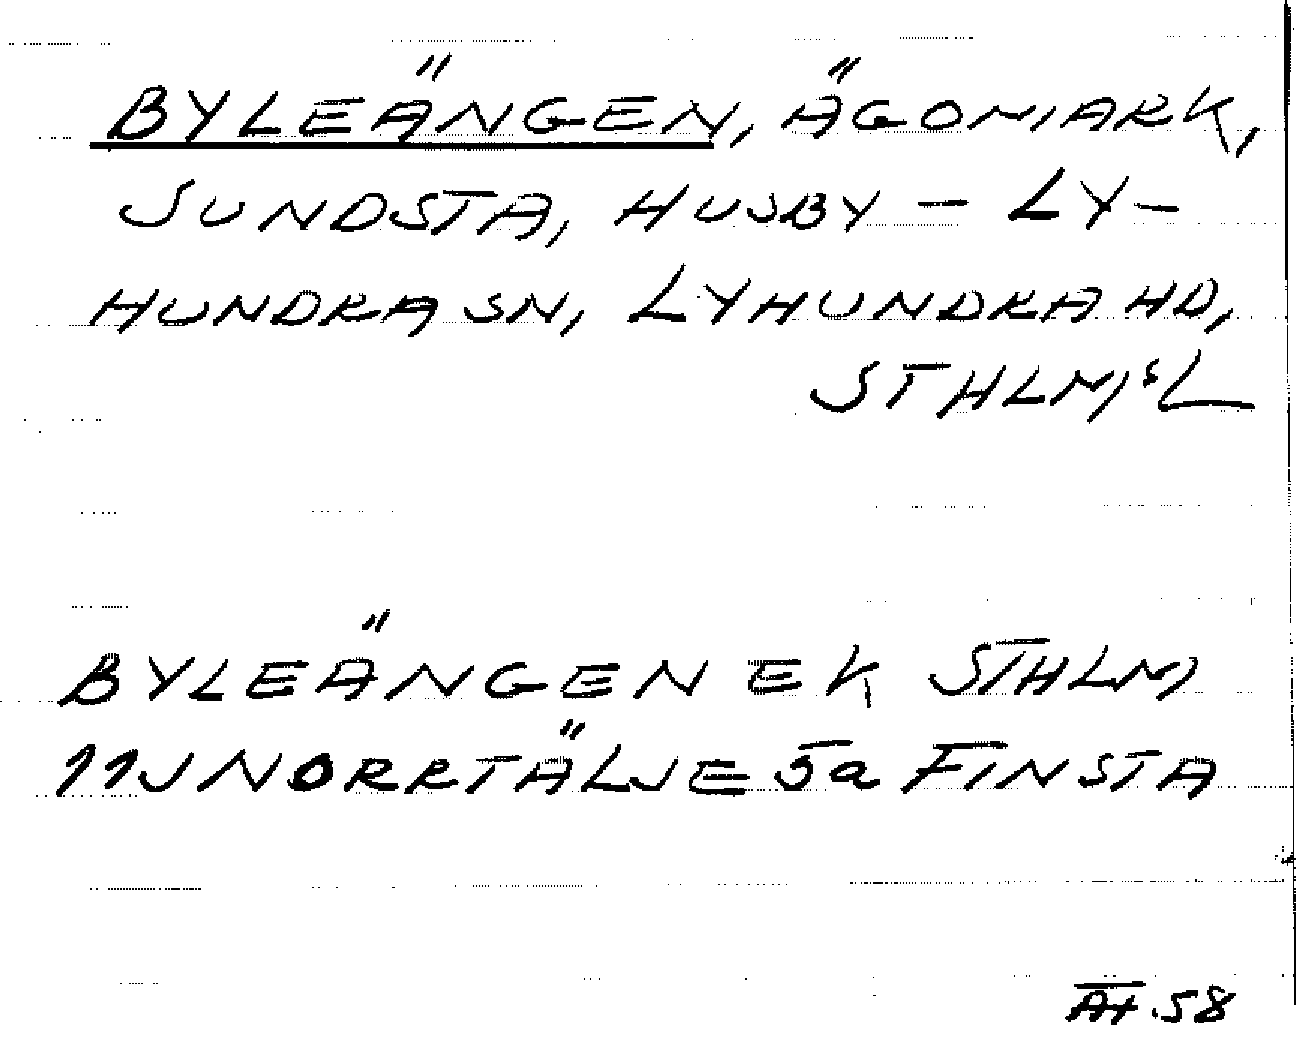 BYLEÄNGEN, ÄGOMARK,
SUNDSTA, HUSBY – LY-
HUNDRA SN, LYHUNDRA HD,
STHLMSL
BYLEÄNGEN EK STHLM
11J NORRTÄLJE 5a FINSTA
58